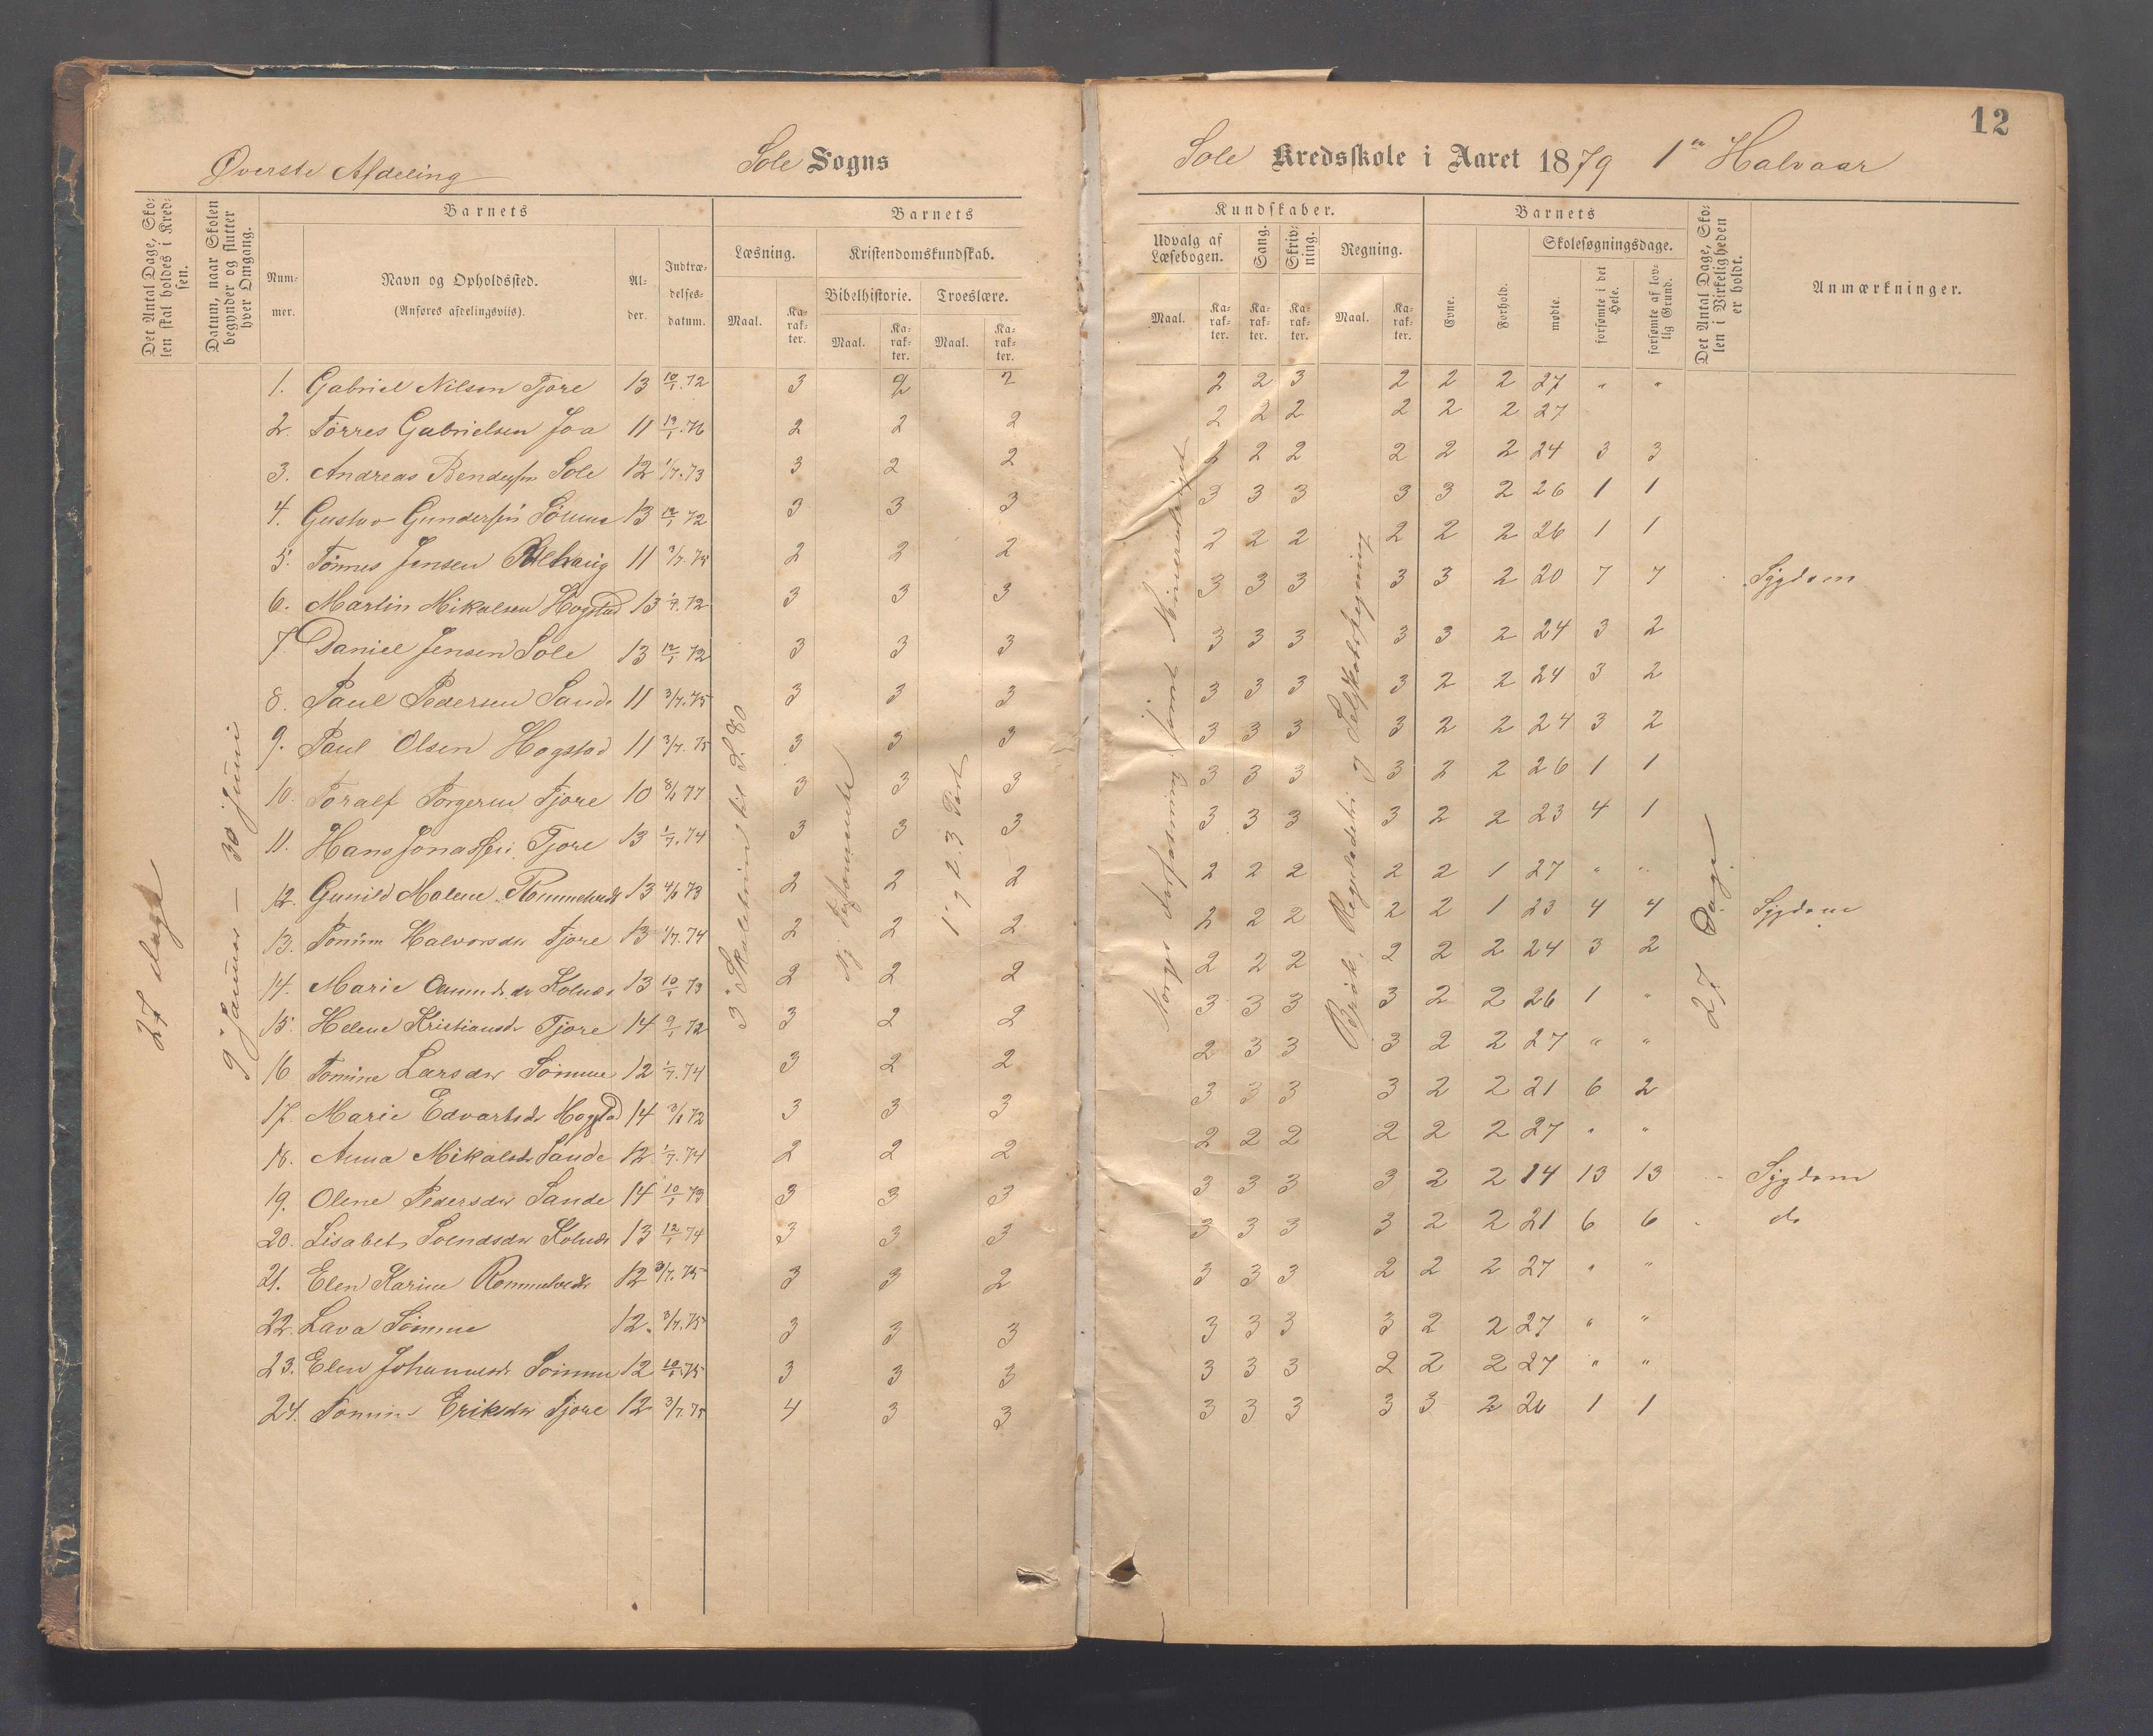 12
Øverste Afdeling
Sole Sogns
Sole Kredsskole i Aaret 1879 1ste Halvaar
Det Antal Dage, Skolen skal holdes i Kredsen.
Datum, naar Skolen begynder og slutter hver Omgang.
Barnets
Nummer.
Navn og Opholdssted.
(Anføres afdelingsviis).
Alder.
Indtrædelsesdatum.
Barnets
Læsning.
Maal.
Karakter.
Kristendomskundskab.
Bibelhistorie.
Maal.
Karakter.
Troeslære.
Maal.
Karakter.
Kundskaber.
Udvalg af Læsebogen.
Maal.
Karakter.
Sang.
Karakter.
Skrivning.
Karakter.
Regning.
Maal.
Karakter.
Barnets
Evne.
Forhold.
Skolesøgningsdage.
mødte.
forsømte i det Hele.
forsømte af lovlig Grund.
Det Antal Dage, Skolen i Virkeligheden er holdt.
Anmærkninger.
27 dage
9 Januar — 30 Juni
3 Skoletrin til S. 80
1. 2. 3 Part
Norges Forfatning samt Mineralriget
Brøk, Reguladetri og Selskabsregning
27 Dage
1. Gabriel Nilsen Tjore 13 10/1.72 3 2 2 2 2 3 2 2 2 27 " "
2. Tørres Gabrielsen Joa 11 19/1.76 2 2 2 2 2 2 2 2 2 27
3. Andreas Bendiksen Sole 12 1/7.73 3 2 2 2 2 2 2 2 2 24 3 3
4. Gustav Gundersen Sømme 13 12/1 72 3 3 3 3 3 3 3 3 2 26 1 1
5. Tønnes Jensen 11 3/7.75 2 2 2 2 2 2 2 2 2 26 1 1
6. Martin Mikalsen Hogstad 13 1/7.72 3 3 3 3 3 3 3 3 2 20 7 7 Sygdom
7. Daniel Jensen Sole 13 12/1 72 3 3 3 3 3 3 3 3 2 24 3 2
8. Paul Pedersen Sande 11 3/7.75 3 3 3 3 3 3 3 2 2 24 3 2
9. Paul Olsen Hogstad 11 3/7.75 3 3 3 3 3 3 3 2 2 24 3 2
10. Toralf Torgersen Tjore 10 8/1 77 3 3 3 3 3 3 3 2 2 26 1 1
11. Hans Jonassen Tjore 13 1/7.74 3 3 3 3 3 3 3 2 2 23 4 1
12. Gunild Malene Rommetvedt 13 4/1 73 2 2 2 2 2 2 2 2 1 27 " "
13. Tomine Halvorsdtr Tjore 13 1/7.74 2 2 2 2 2 2 2 2 1 23 4 4 Sygdom
14. Marie Kolnes 13 10/1 73 2 2 2 2 2 2 2 2 2 24 3 2
15. Helene Kristiansdr Tjore 14 9/1 72 3 2 2 3 3 3 3 2 2 26 1 "
16 Tomine Larsdtr Sømme 12 1/7.74 3 2 2 2 3 3 3 2 2 27 " "
17. Marie Edvartsdr Hogstad 14 3/1 72 3 3 3 3 3 3 3 2 2 21 6 2
18. Anna Mikalsdr Sande 12 1/7.74 2 2 2 2 2 2 2 2 2 27 " "
19. Olene Pedersdtr Sande 14 10/1 73 3 3 3 3 3 3 3 2 2 14 13 13 Sygdom
20. Lisabet Svendsdtr Kolnes 13 12/1 74 3 3 3 3 3 3 3 2 2 21 6 6 do
21. Elen Karine Rommetvedt 12 3/7.75 3 3 2 3 3 3 2 2 2 27 " "
22. Lava Sømme 12. 3/7.75 3 3 3 3 3 3 3 2 2 27 " "
23. Elen Johannesdr Sømme 12 10/1.75 3 3 3 3 3 3 2 2 2 27 " "
24. Tomine Eriksdtr Tjore 12 3/7.75 4 3 3 3 3 3 3 3 2 26 1 1